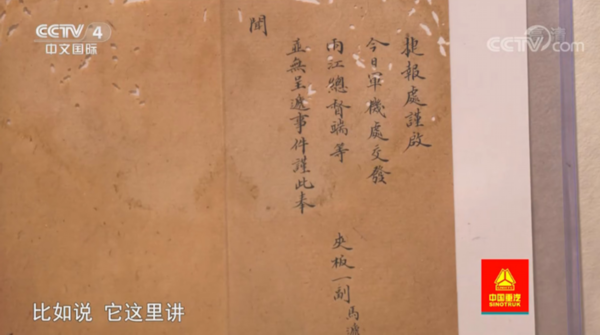 CCTV 4
中文国际
CCTV.com
捷報處謹啟
今日軍機處交發
兩江總督端等 夾板一副馬
並無呈遞事件謹此奉
聞
比如说 它这里讲
中国重汽
SINOTRUK